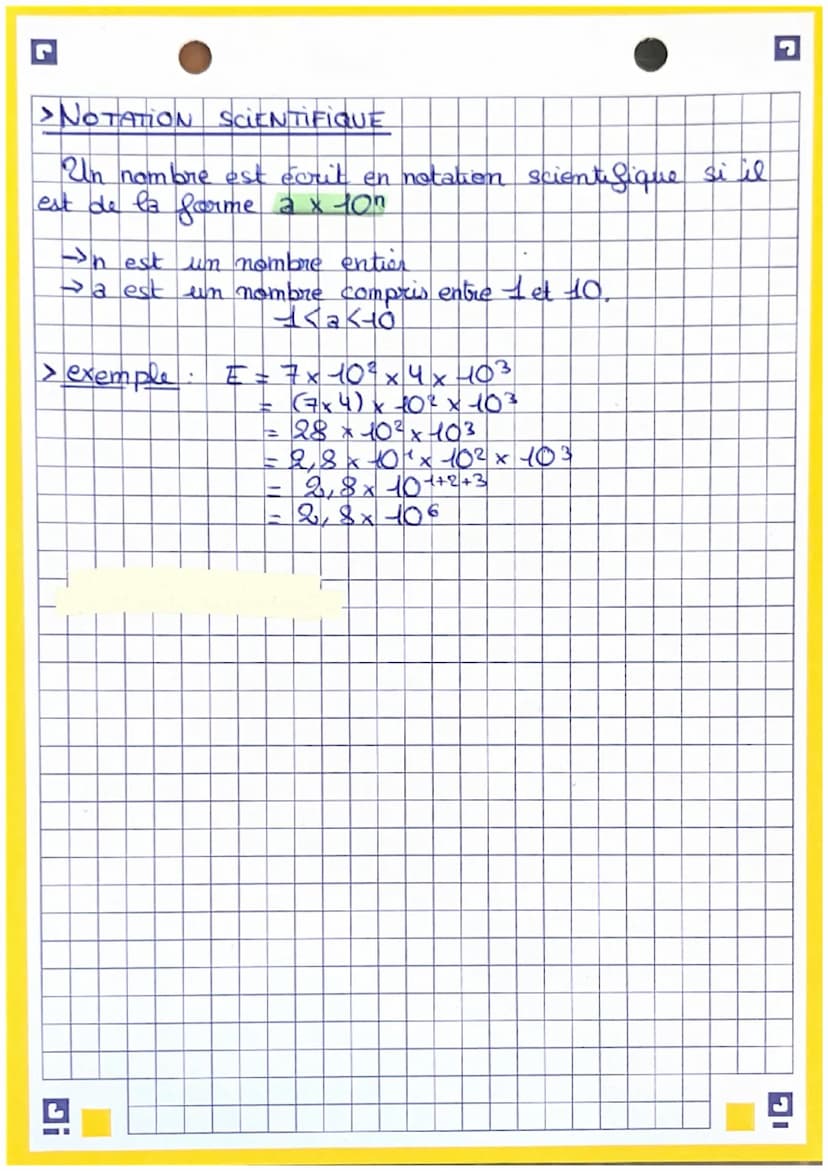 > NOTATION SCIENTIFIQUE
Un nombre est écrit en notation scientifique si il
est de la forme a x 10ⁿ
→ n est un nombre entier
→ a est un nombre compris entre 1 et 10.
1 < a < 10
> exemple : E = 7 x 10² x 4 x 10³
= (7x4) x 10² x 10³
= 28 x 10² x 10³
= 2,8 x 10¹ x 10² x 10³
= 2,8 x 10¹⁺²⁺³
= 2,8 x 10⁶